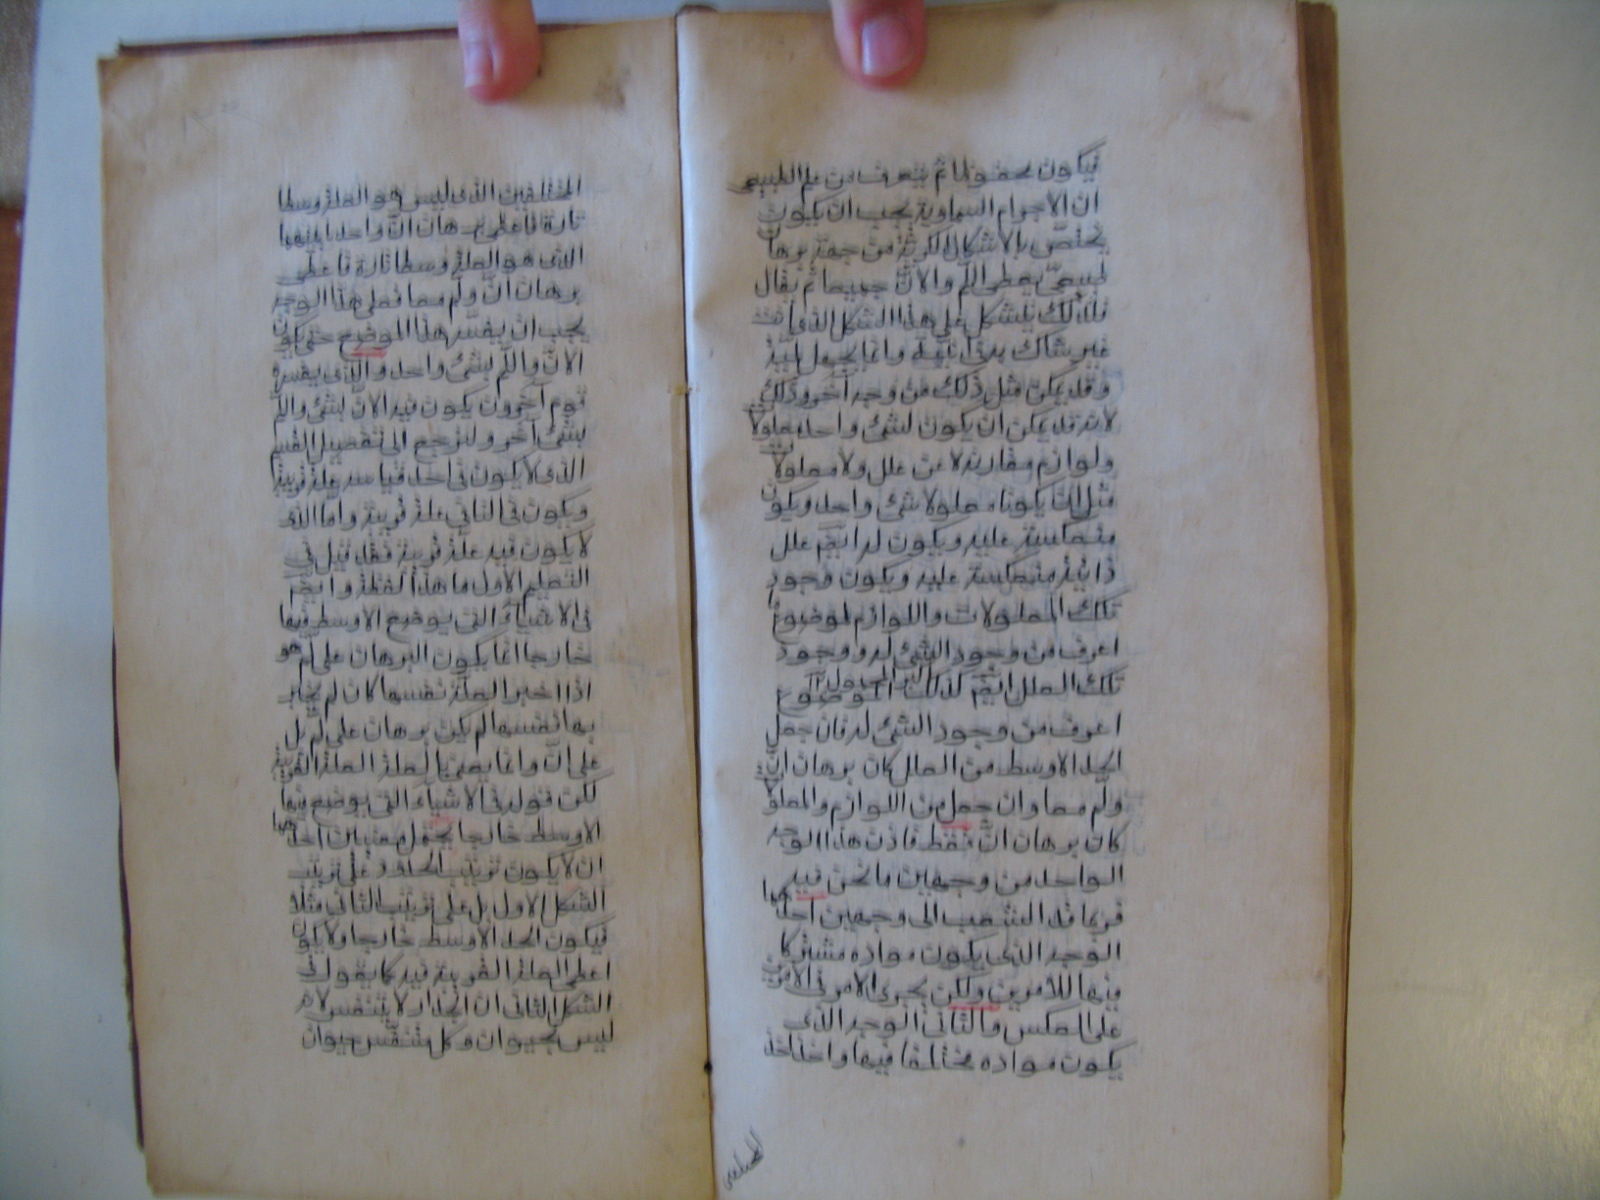 فيكون محفوظا ثم يتعرف من علم الطبيعى
ان الاجرام السماوية يجب ان يكون
يختص بالاشكال الكرية من جهة برهان
طبيعى يعطى اللم والان جميعا ثم يقال
فلذلك يتشكل على هذا الشكل الذى
غير شاك بدى انه وانما يجعل
وقد يمكن مثل ذلك من وجه آخر وذلك
لانه قد يمكن ان يكون لشئ واحد معلولات
ولوازم مقارنة لا عن علل ولا معلولا
مثل ان يكونا معلولا شئ واحد ويكون
منعكسة عليه ويكون له ايضم علل
ذاتية منعكسة عليه ويكون وجود
تلك المعلولات واللوازم لموضوع
اعرف من وجود الشئ له ووجود
تلك العلل ايضم لذلك الموضوع
اعرف من وجود الشئ له فان جعل
الحد الاوسط من العلل كان برهان ان
ولم معا وان جعل من اللوازم والمعلولا
كان برهان ان فقط فاذن هذا الوجه
الواحد من وجهين ما نحن فيه
فربما قد الشعب الى وجهين احدهما
الوجه الذى يكون مواده مشتركا
فيها للامرين ولكن يجرى الامر فى الامرين
على العكس والثانى الوجه الذى
يكون مواده مختلفا فيها واخذ اخذ
المختلفين
المختلفين الذى ليس هو العلة وسطا
تارة فاعطى برهان ان واحدا منهما
الذى هو العلة وسطا تارة فاعطى
برهان ان ولم معا فعلى هذا الوجه
يجب ان يفسر هذا الموضع حتى يكون
الان واللم لشئ واحد والذى يفسره
قوم آخرون يكون فيه الان لشئ واللم
لشئ آخر ولنرجع الى تفصيل القسم
الذى لا يكون فى احد قياسيه علة قريبة
ويكون فى الثانى علة قريبة واما الذى
لا يكون فيه علة قريبة فقد قيل فى
التعليم الاول ما هذا لفظه وايضم
فى الاشياء التى يوضع الاوسط فيها
خارجا انما يكون البرهان على لم هو
اذا اخبر العلة نفسها كان لم يخبر
بها نفسها لم يكن برهان على لم بل
على ان وانما يعنى بالعلة العلة القريبة
لكن قوله فى الاشياء التى يوضع فيها
الاوسط خارجا يحتمل معنيين احدهما
ان لا يكون ترتيب الحدود على ترتيب
الشكل الاول بل على ترتيب الثانى مثلا
فيكون الحد الاوسط خارجا ولا يكون
اعطى العلة القريبة فيه كما يقول فى
الشكل الثانى ان الجدار لا يتنفس لانه
ليس بحيوان وكل متنفس حيوان